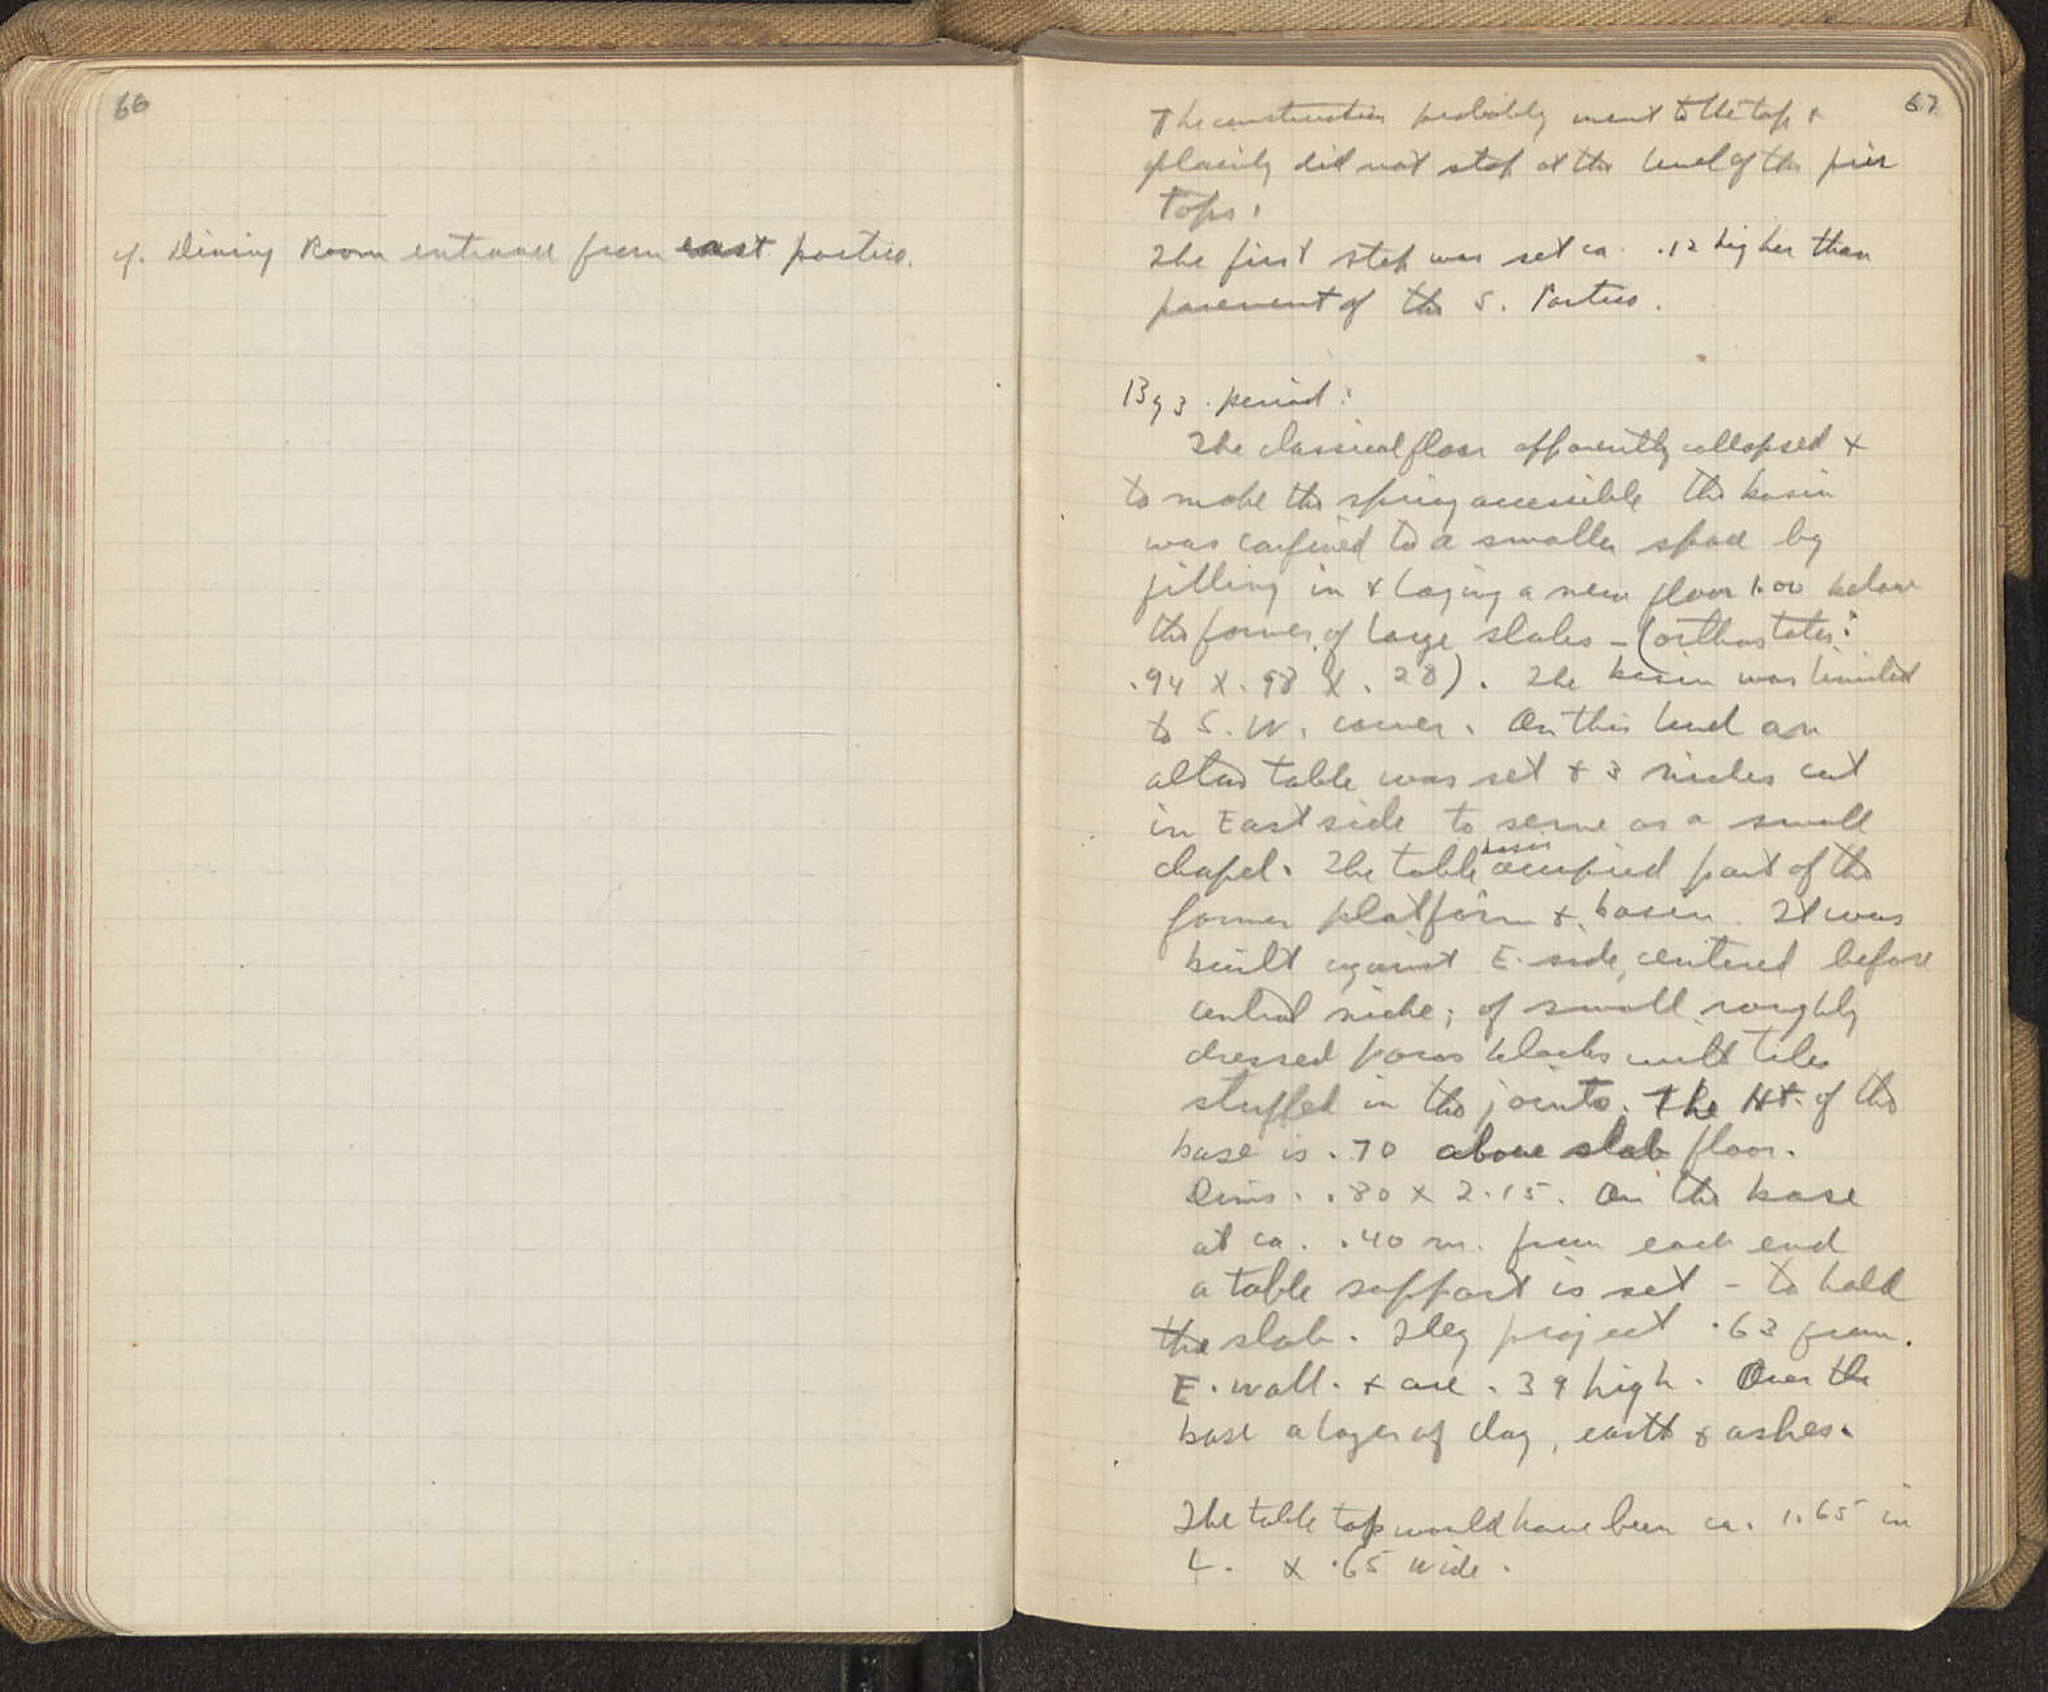 66
cf. Dining Room entrance from east portico.
67
The construction probably went to the top &
plainly did not stop at the level of the pier
tops.
The first step was set ca. .12 higher than
pavement of the S. Portico.
Byz. period:
The classical floor apparently collapsed &
to make the spring accessible the basin
was confined to a smaller space by
filling in & laying a new floor 1.00 below
the former, of large slabs - (orthostates:
.94 x .98 x .28). The basin was limited
to S. W. corner. On this level an
altar table was set & 3 niches cut
in East side to serve as a small
chapel. The table base occupied part of the
former platform & basin. It was
built against E. side, centered before
central niche; of small roughly
dressed poros blocks with tiles
stuffed in the joints. The Ht. of the
base is .70 above slab floor.
Dims. .80 x 2.15. On the base
at ca. .40 m. from each end
a table support is set - to hold
the slab. They project .63 from
E. wall. & are .39 high. Over the
base a layer of clay, earth & ashes.
The table top would have been ca. 1.65 in
L. x .65 wide.